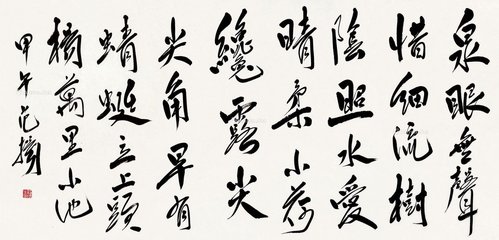 泉眼無聲
惜細流樹
陰照水愛
晴柔小荷
纔露尖
尖角早有
蜻蜓立上頭
楊萬里小池
甲午